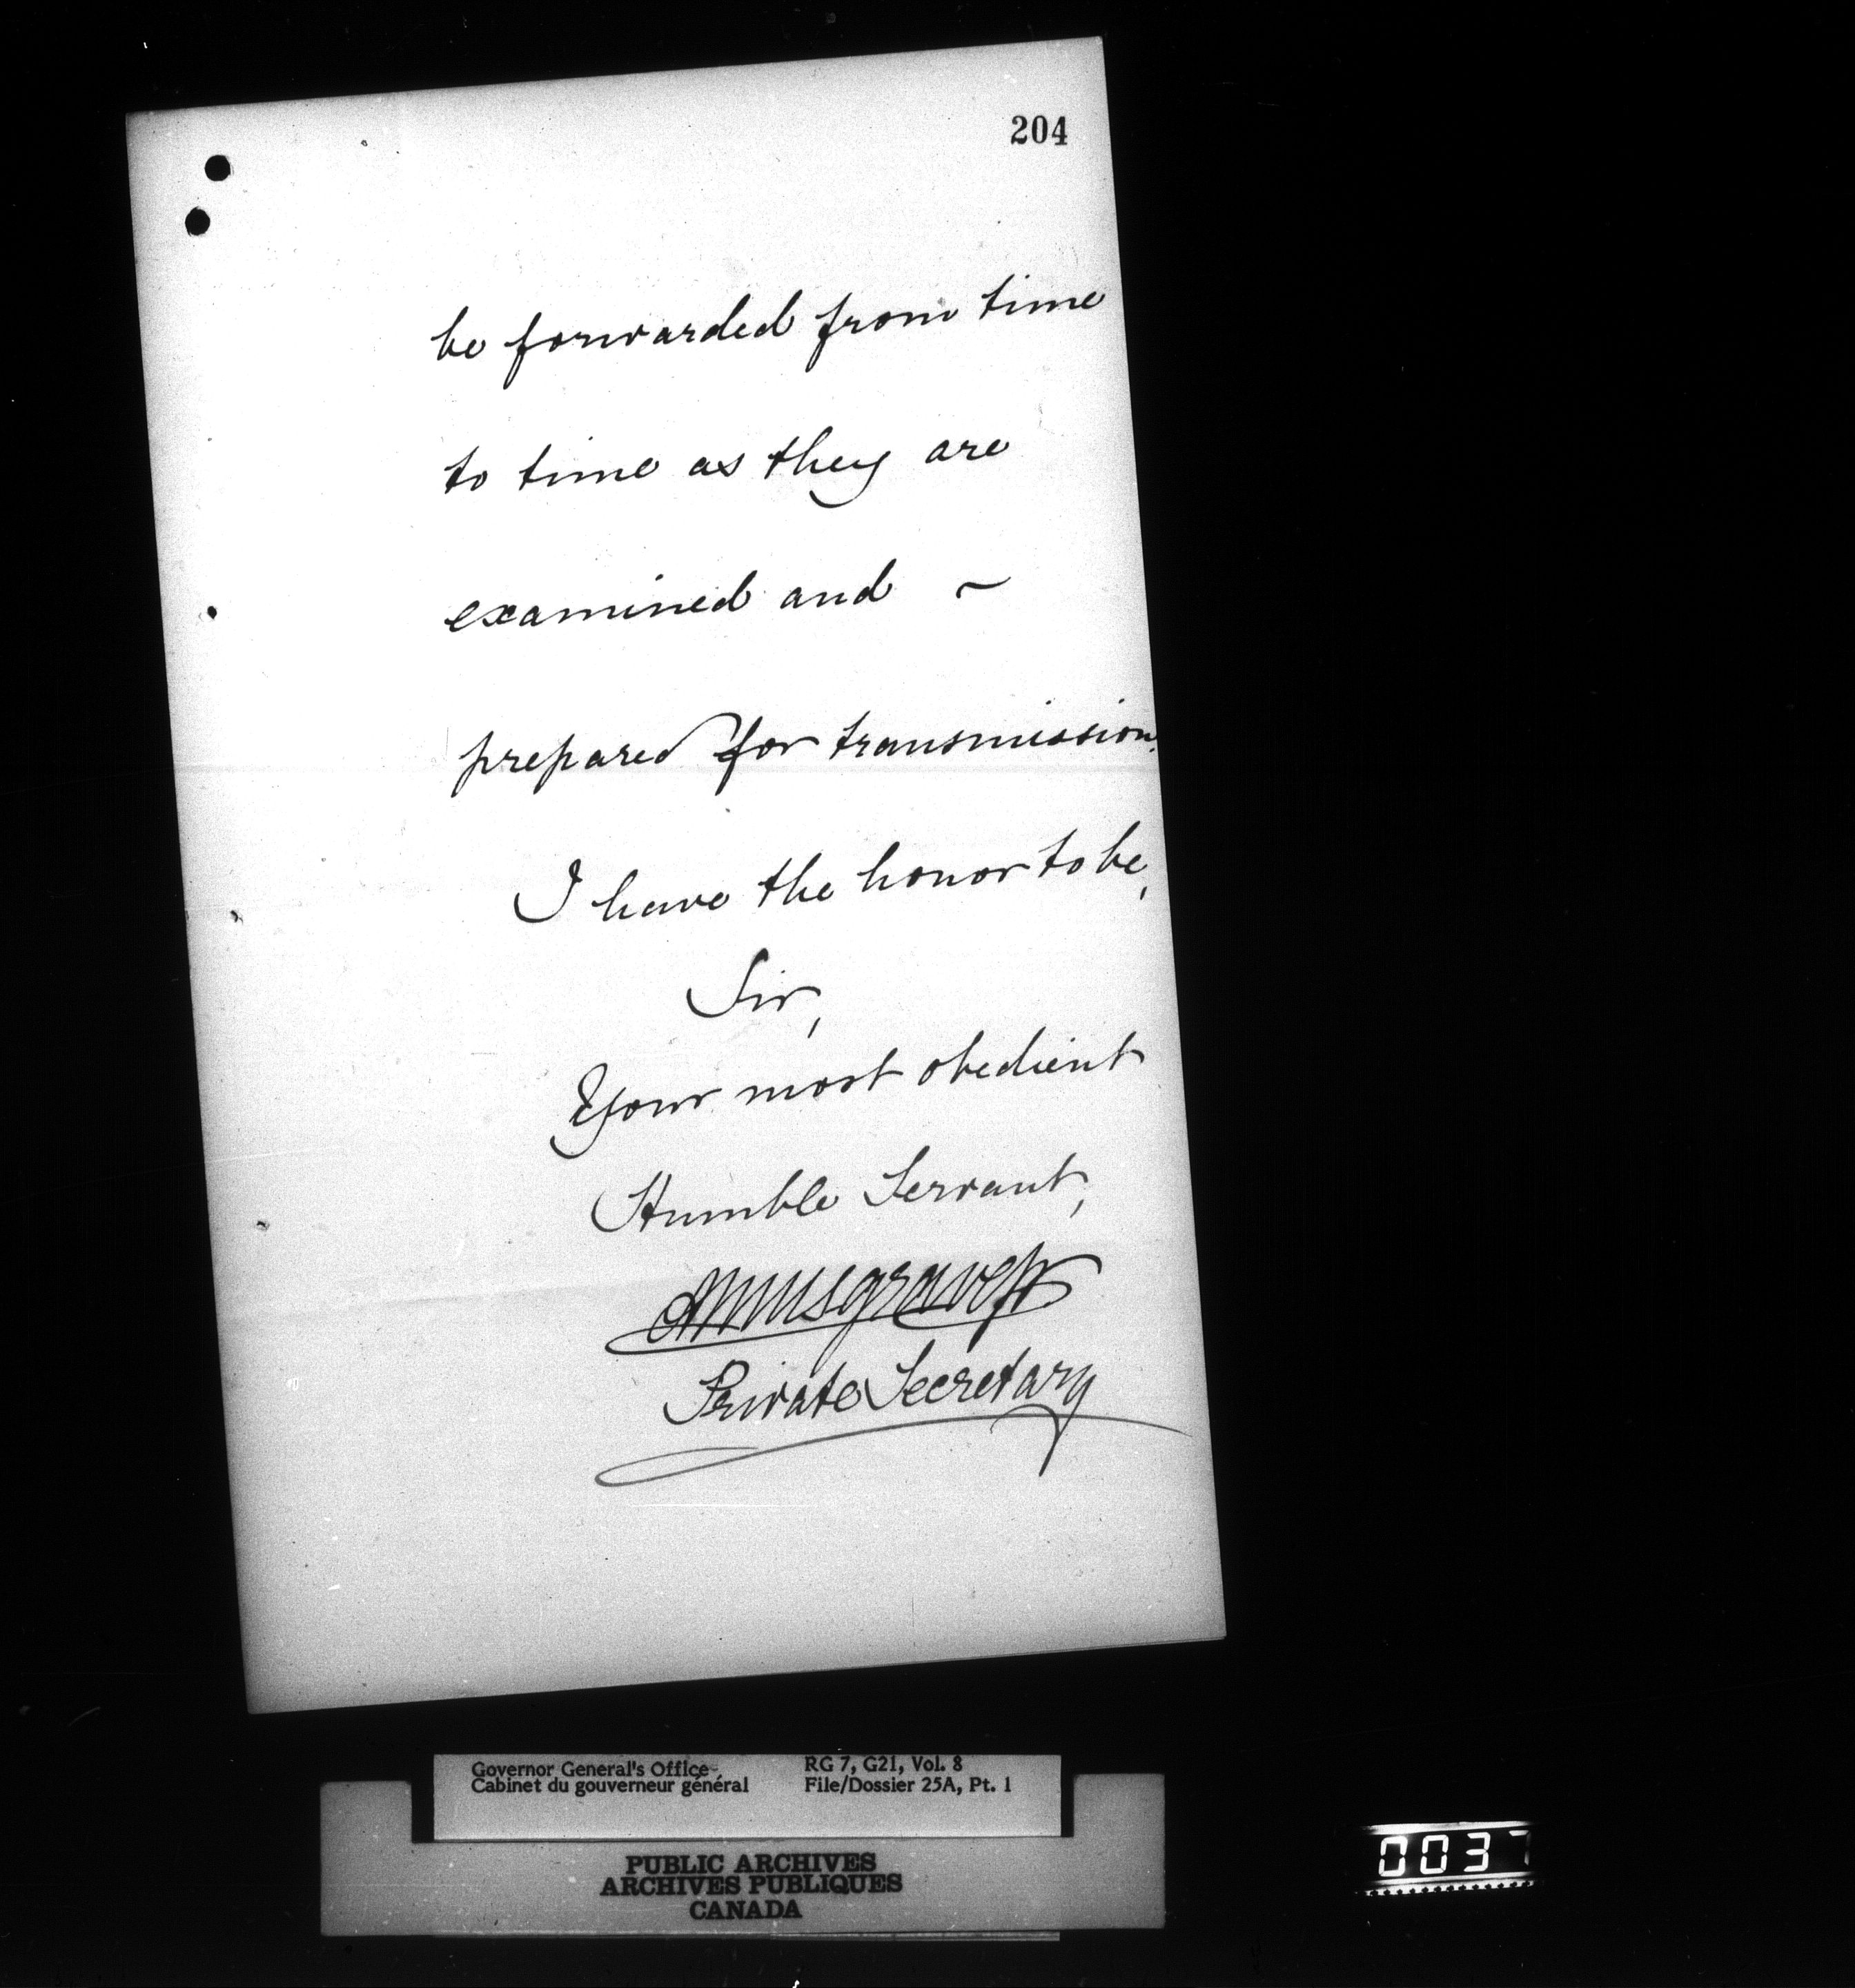 204
be forwarded from time
to time as they are
examined and ~
prepared for transmission.
I have the honor to be,
Sir,
Your most obedient
Humble Servant,
AMusgrave Jr
Private Secretary
Governor General's Office
Cabinet du gouverneur général
RG 7, G21, Vol. 8
File/Dossier 25A, Pt. 1
PUBLIC ARCHIVES
ARCHIVES PUBLIQUES
CANADA
0037